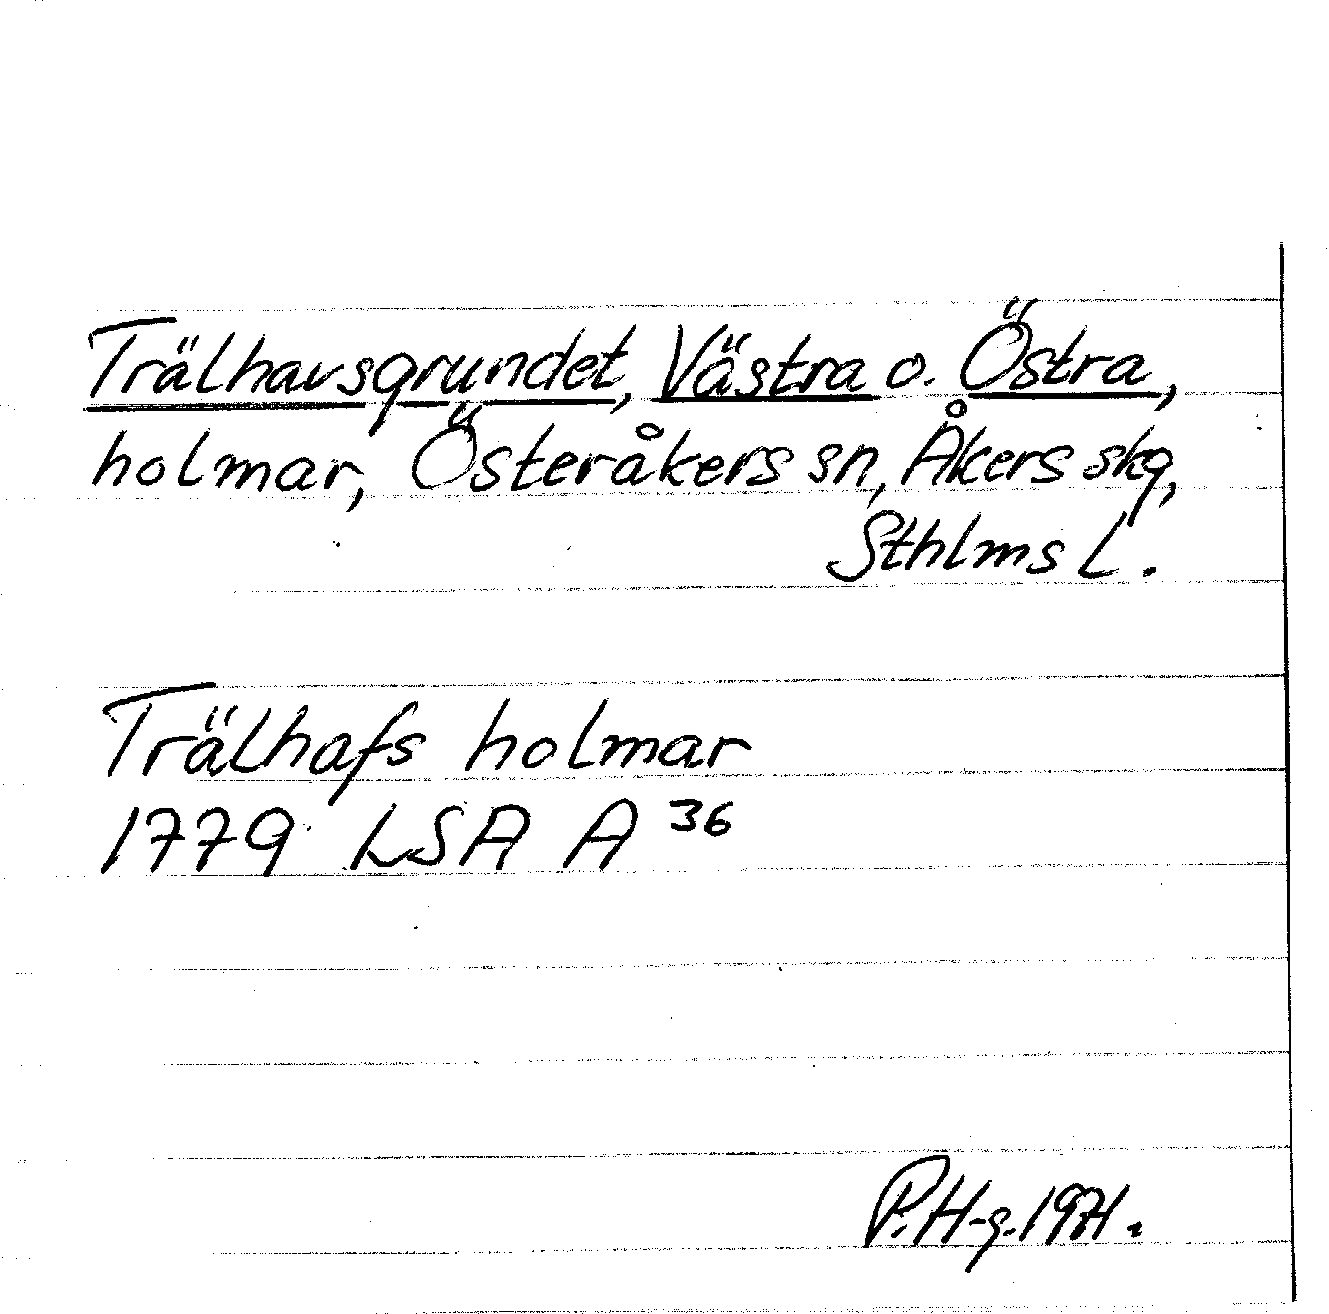 Trälhavsgrundet, Västra o. Östra,
holmar, Österåkers sn, Åkers skg,
Sthlms L.
Trälhafs holmar
1779 LSA A 36
P. H-g. 1971.